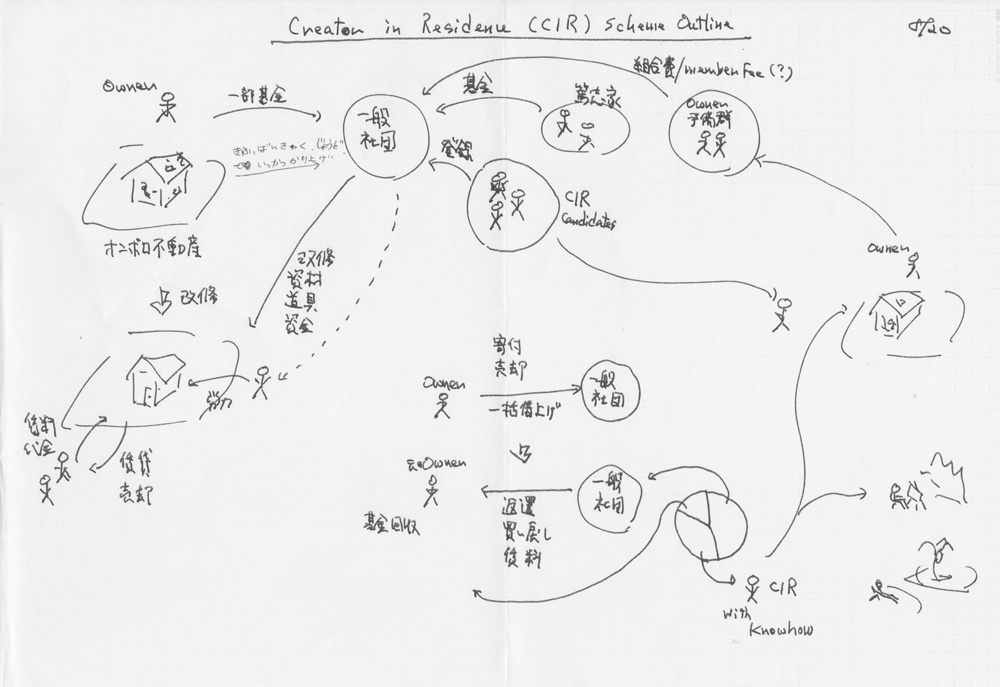 Creator in Residence (CIR) Scheme Outline
8/20
Owner
一部基金
一般
社団
基金
篤志家
組合費/member Fee (?)
Owner
予備群
登録
CIR
Candidates
オンボロ不動産
改修
改修
資材
道具
資金
労力
賃料
代金
賃貸
売却
Owner
寄付
売却
一括借上げ
一般
社団
元Owner
基金回収
返還
買い戻し
賃料
一般
社団
CIR
with
Knowhow
Owner